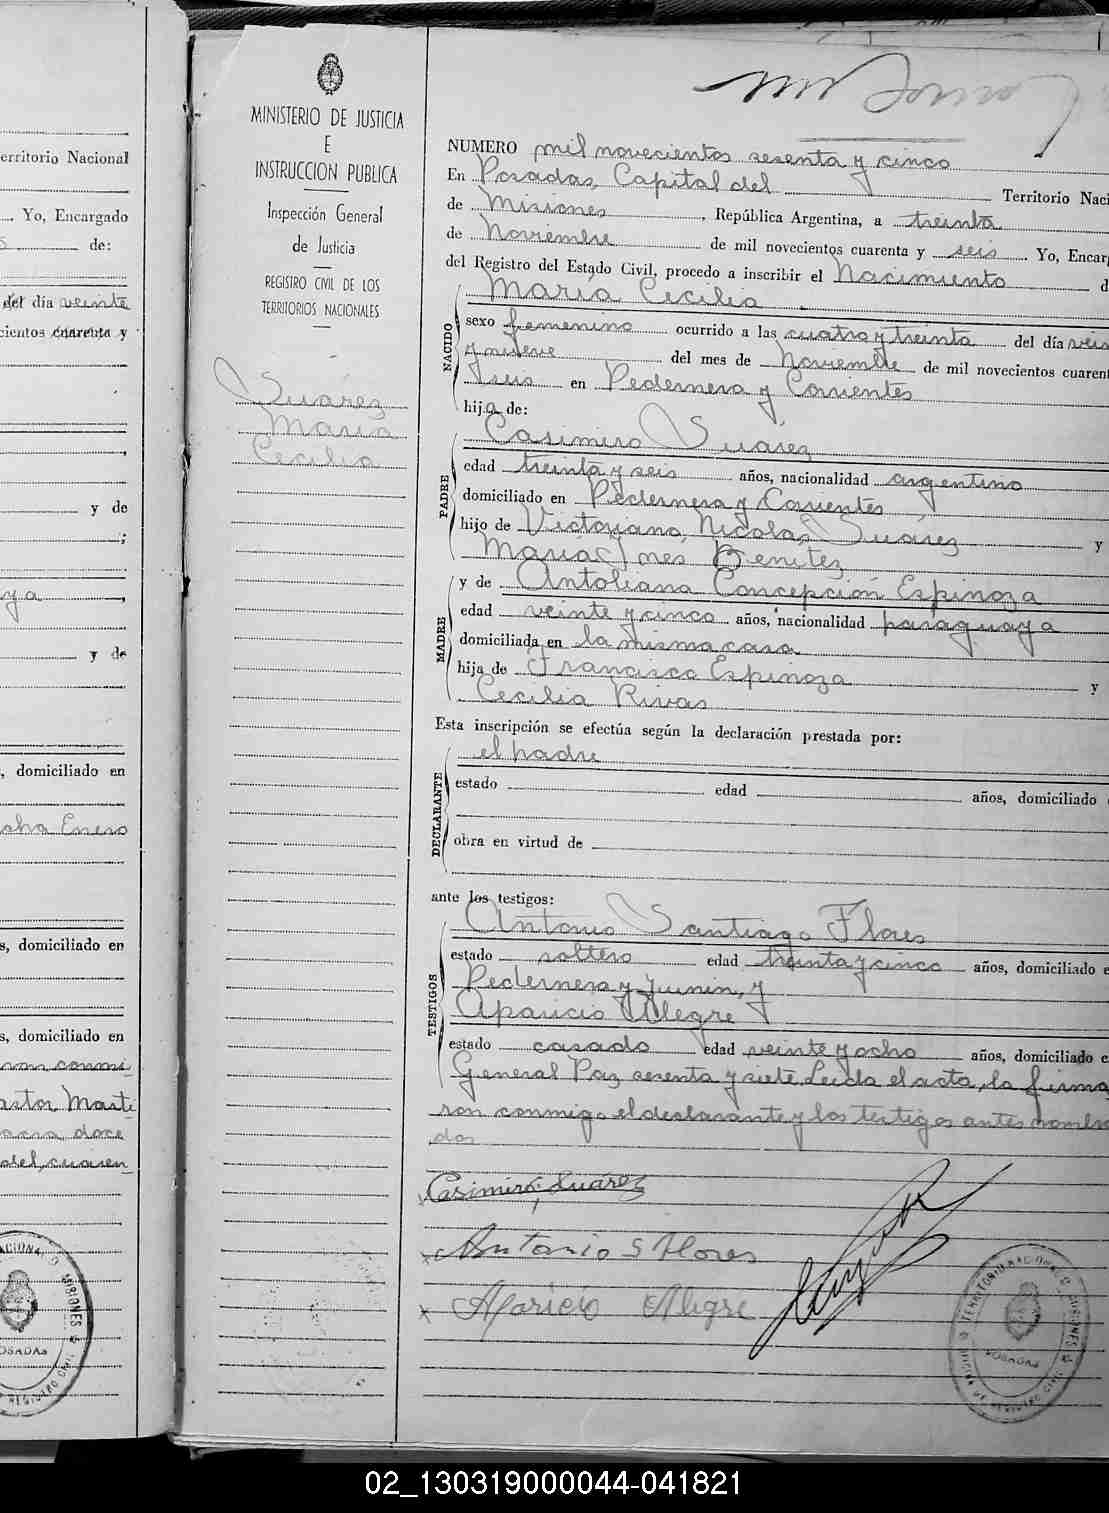 erritorio Nacional
Yo, Encargado
de:
del día veinte
cientos cuarenta y
y de
;
ya
y de
, domiciliado en
cha Enero
s, domiciliado en
s, domiciliado en
ron conmi
doce
cuaren
MISIONES
POSADAS
MINISTERIO DE JUSTICIA
E
INSTRUCCION PUBLICA
Inspección General
de Justicia
REGISTRO CIVIL DE LOS
TERRITORIOS NACIONALES
Suárez
María
Cecilia
NUMERO mil novecientos sesenta y cinco
En Posadas, Capital del Territorio Naci
de Misiones, República Argentina, a treinta
de Noviembre de mil novecientos cuarenta y seis Yo, Encar
del Registro del Estado Civil, procedo a inscribir el Nacimiento d
NACIDO
María Cecilia
sexo femenino ocurrido a las cuatro y treinta del día vein
y nueve del mes de Noviembre de mil novecientos cuaren
y seis en Pedernera y Corrientes
hija de:
PADRE
Casimiro Suárez
edad treinta y seis años, nacionalidad argentino
domiciliado en Pedernera y Corrientes
hijo de Victoriano Nicolas Suárez y
María Ines Benítez
MADRE
y de Antoliana Concepción Espinoza
edad veinte y cinco años, nacionalidad paraguaya
domiciliada en la misma casa
hija de Francisco Espinoza y
Cecilia Rivas
Esta inscripción se efectúa según la declaración prestada por:
DECLARANTE
el padre
estado edad años, domiciliado
obra en virtud de
ante los testigos:
TESTIGOS
Antonio Santiago Flores
estado soltero edad treinta y cinco años, domiciliado e
Pedernera y Junin, y
Aparicio Alegre
estado casado edad veinte y ocho años, domiciliado e
General Paz sesenta y siete. Leida el acta, la firma
ron conmigo el declarante y los testigos antes nombra
dos
Casimiro Suárez
Antonio S Flores
Aparicio Alegre
TERRITORIO NACIONAL MISIONES
POSADAS
OFICINA DE REGISTRO CIVIL
02_130319000044-041821